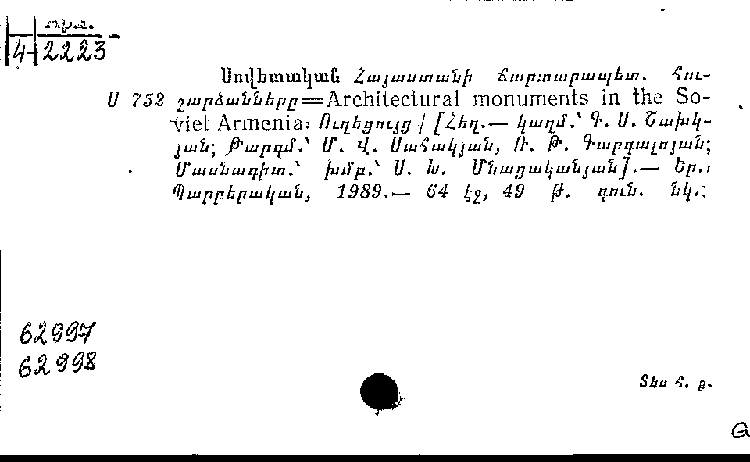 4-2223
Սովետական Հայաստանի Ճարտարապետ. Հու-
Ս 752 շարձանները=Architectural monuments in the So-
viet Armenia: Ուղեցույց / [Հեղ.— կազմ.՝ Գ. Ս. Նախկ-
յան; Թարգմ.՝ Մ. Վ. Սահակյան, Ռ. Թ. Գարգալոյան;
Մասնագիտ.՝ խմբ.՝ Ս. Խ. Մնացականյան].— Եր.:
Պարբերական, 1989.— 64 էջ, 49 թ. գուն. նկ.;
62997
62998
Տես հ. ք.